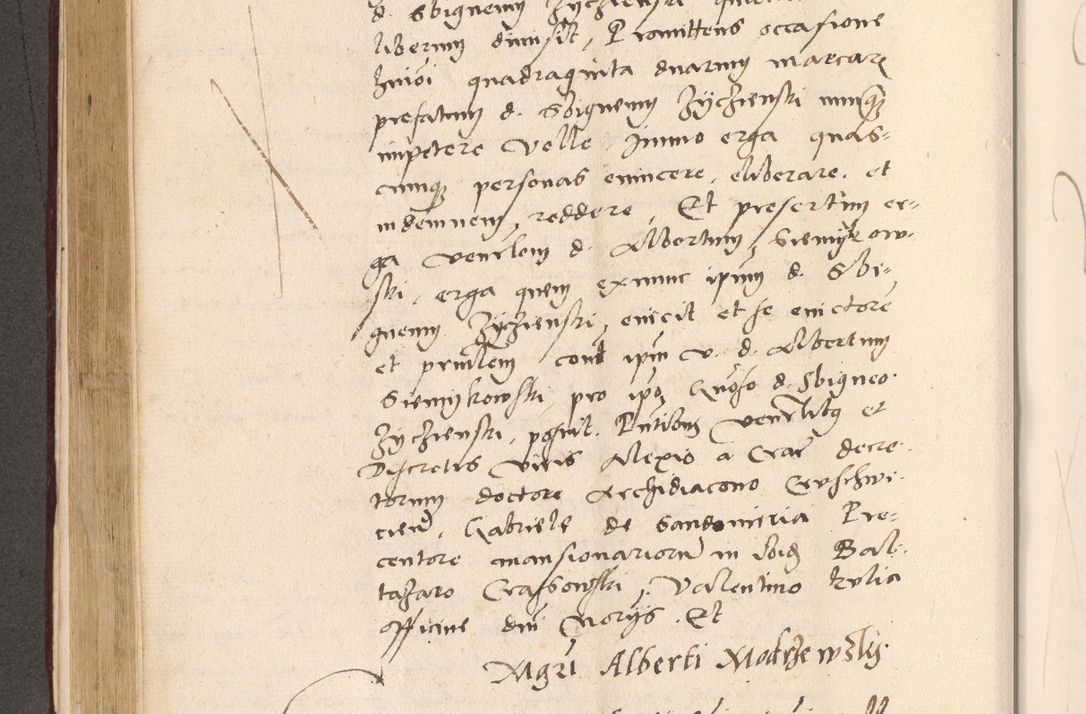 d. Sbignemu Zychienski
liberum dimisit, Promittens occasione
huiusmodi quadraginta duarum marcarum
prefatum d. Sbigneum Zÿchienski nunquam
impetere velle Immo erga quas-
cunque personas evincere, eliberare, et
indemnem, reddere, Et presertim er-
ga venerabilem d. Albertum, Siemykow-
ski, erga quem exnunc ipsum d. Sbi-
gneum Zÿchienski, evicit et se evictore
et principalem contra ipsum v. d. Albertum
Siemykowski, pro ipso Generoso d. Sbigneo
Zychienski, posuit. Presentibus venerabilibus et
Discretis viris Alexio a Crac decre-
torum doctore Archidiacono
Gabriele de Sandomiria Pre-
centore mansionariorum in ibidem Bal-
tasaro Crassowski, Valentino
officine domini Notariis. Et
Mgri Alberti Modrzewsky